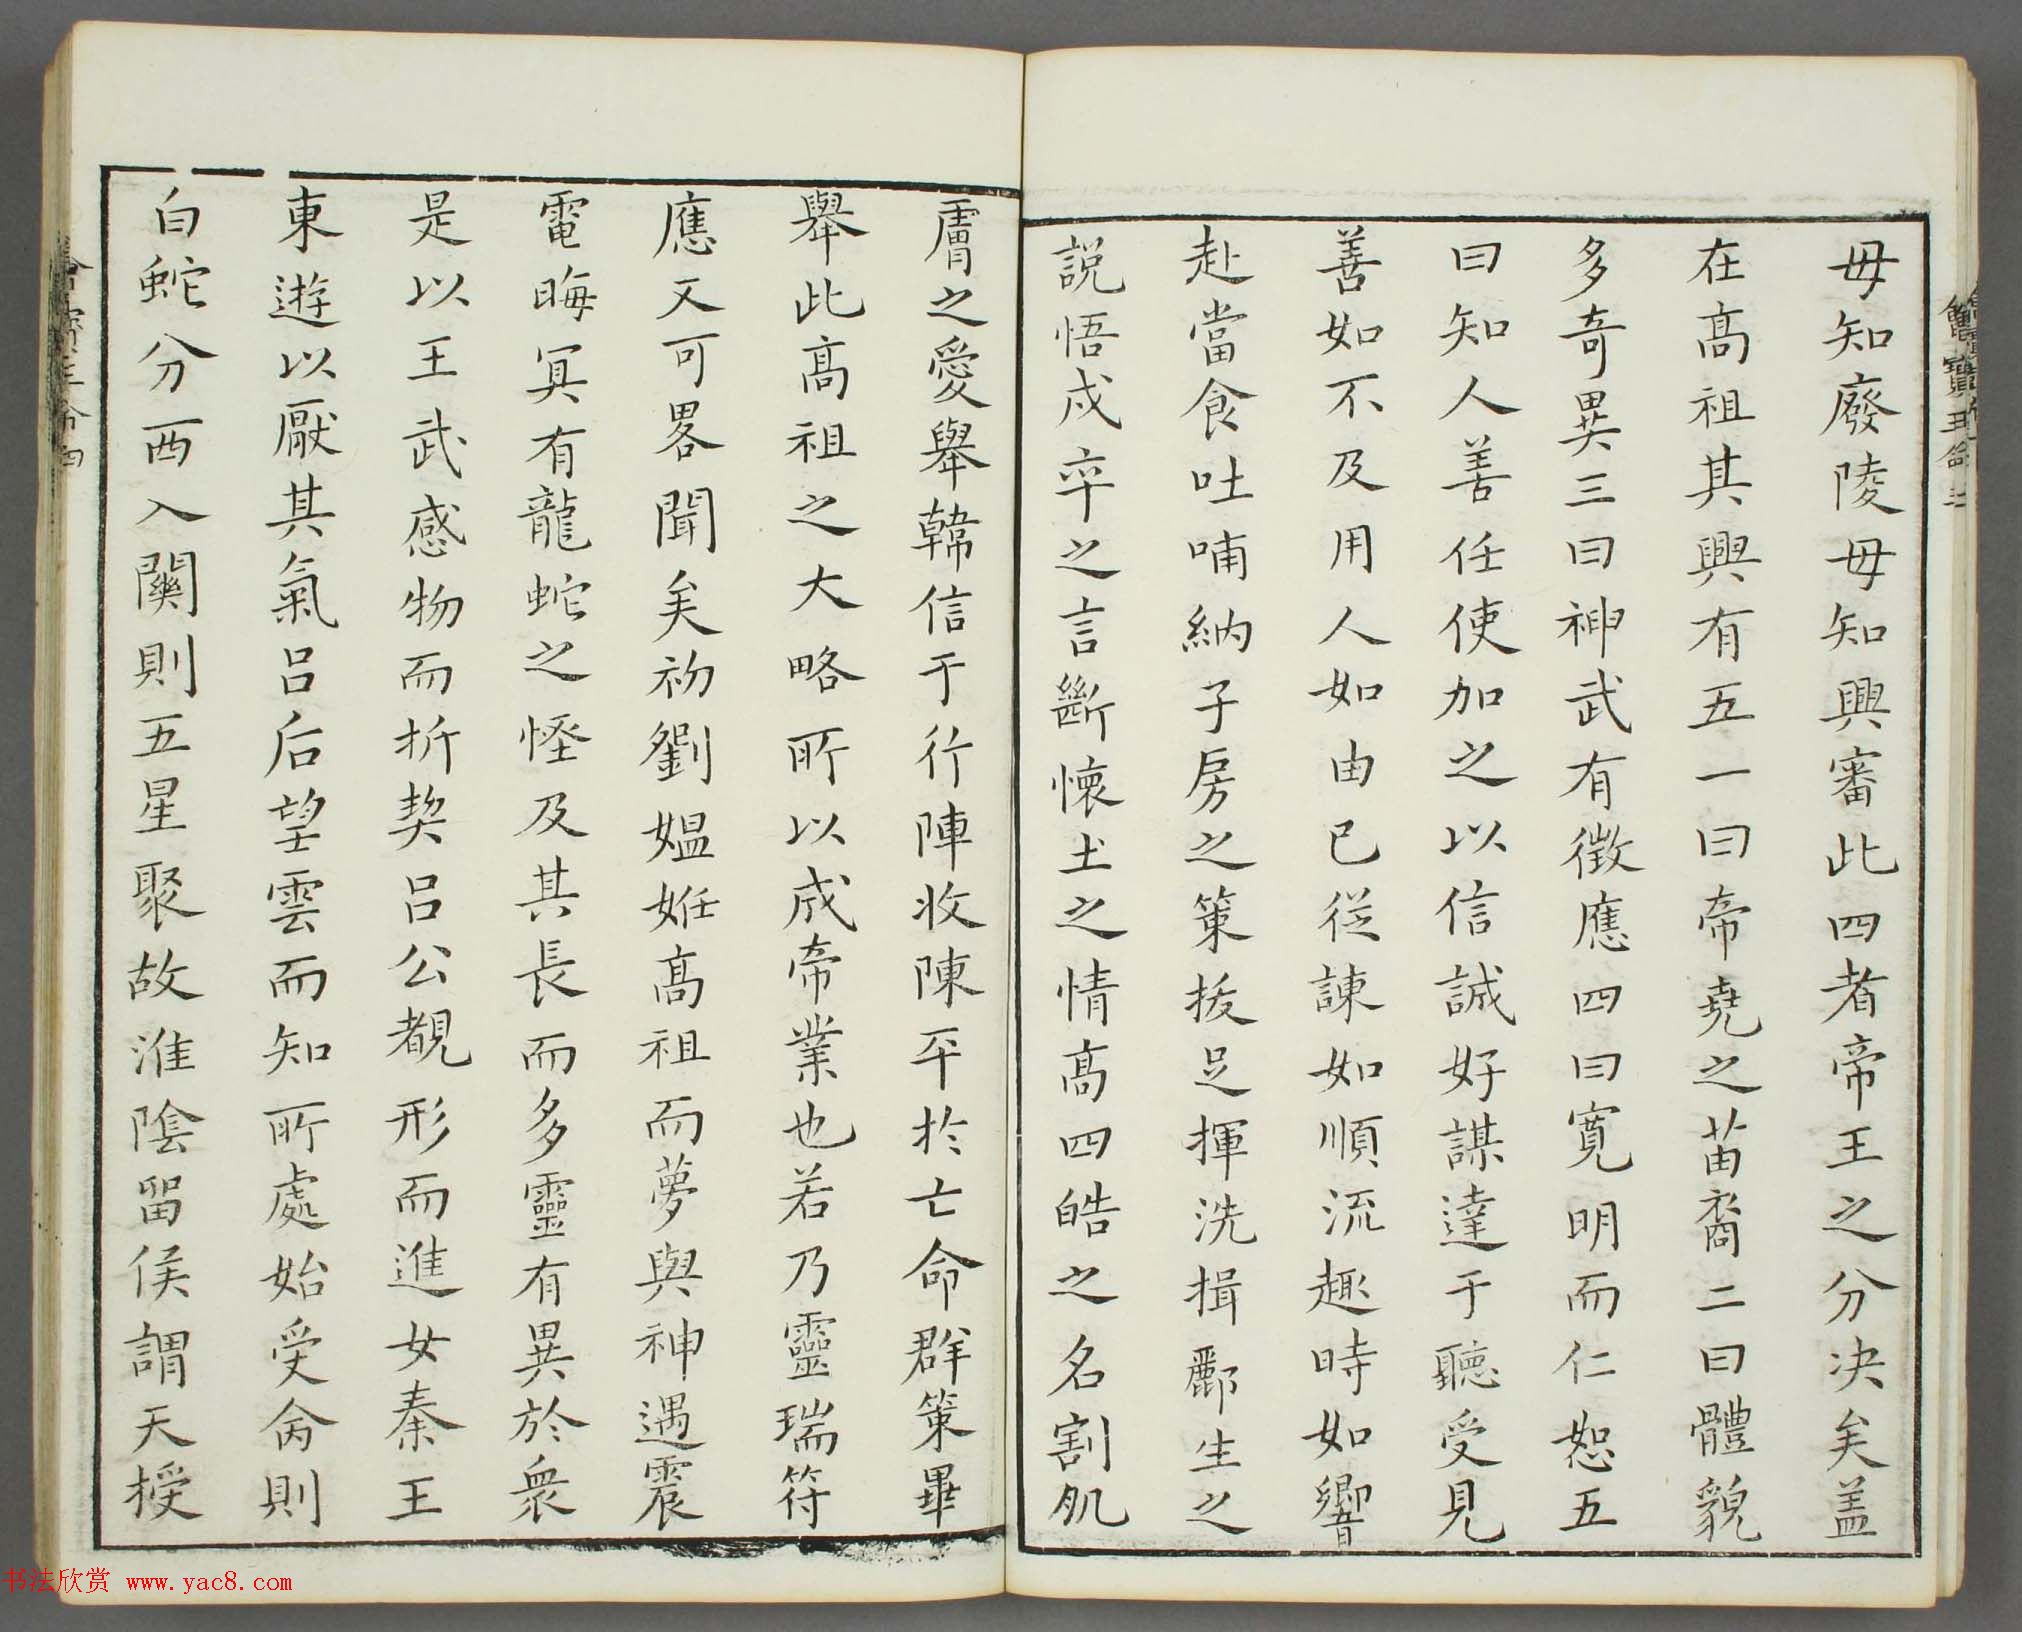 毋知廢陵毋知興審此四者帝王之分决矣盖
在高祖其興有五一曰帝堯之苗裔二曰體貌
多奇異三曰神武有徵應四曰寬明而仁恕五
曰知人善任使加之以信誠好謀達于聽受見
善如不及用人如由已從諫如順流趣時如響
赴當食吐哺納子房之策拔足揮洗揖酈生之
説悟戍卒之言斷懷土之情高四皓之名割肌
膚之愛舉韓信于行陣收陳平於亡命群策畢
舉此高祖之大略所以成帝業也若乃靈瑞符
應又可畧聞矣初劉媼姙高祖而夢與神遇震
電晦冥有龍蛇之怪及其長而多靈有異於衆
是以王武感物而折契呂公覩形而進女秦王
東遊以厭其氣呂后望雲而知所處始受命則
白蛇分西入關則五星聚故淮陰留侯謂天授
书法欣赏 www.yac8.com